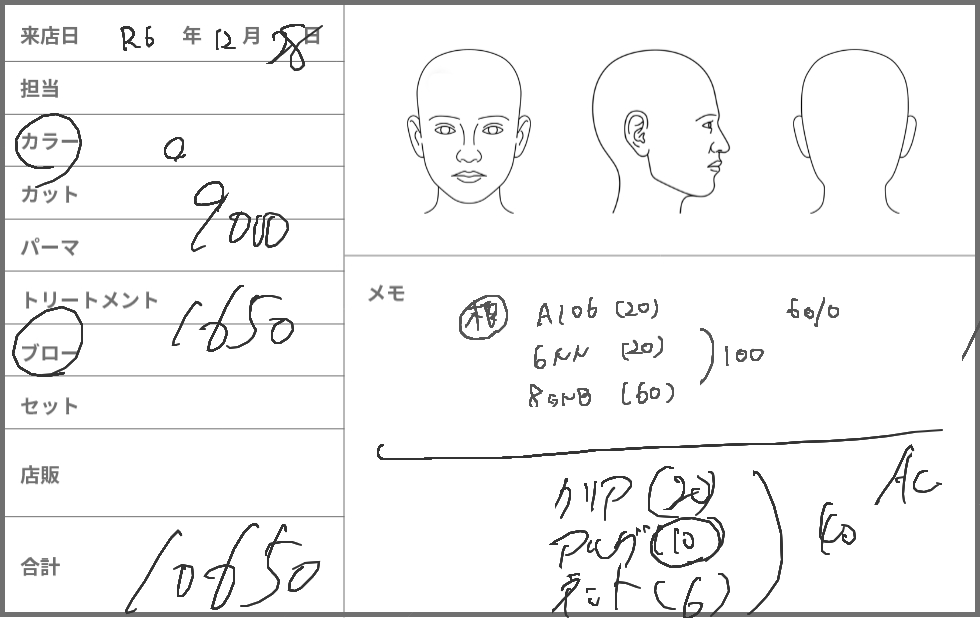 来店日 R6 年 12 月 28 日
担当
カラー
カット 9000
パーマ
トリートメント
ブロー 1650
セット
店販
合計 10650
メモ
根 A106 (20) 60/0
6NN (20)
100
8GNB (60)
クリア (20)
AC
(10)
(6)